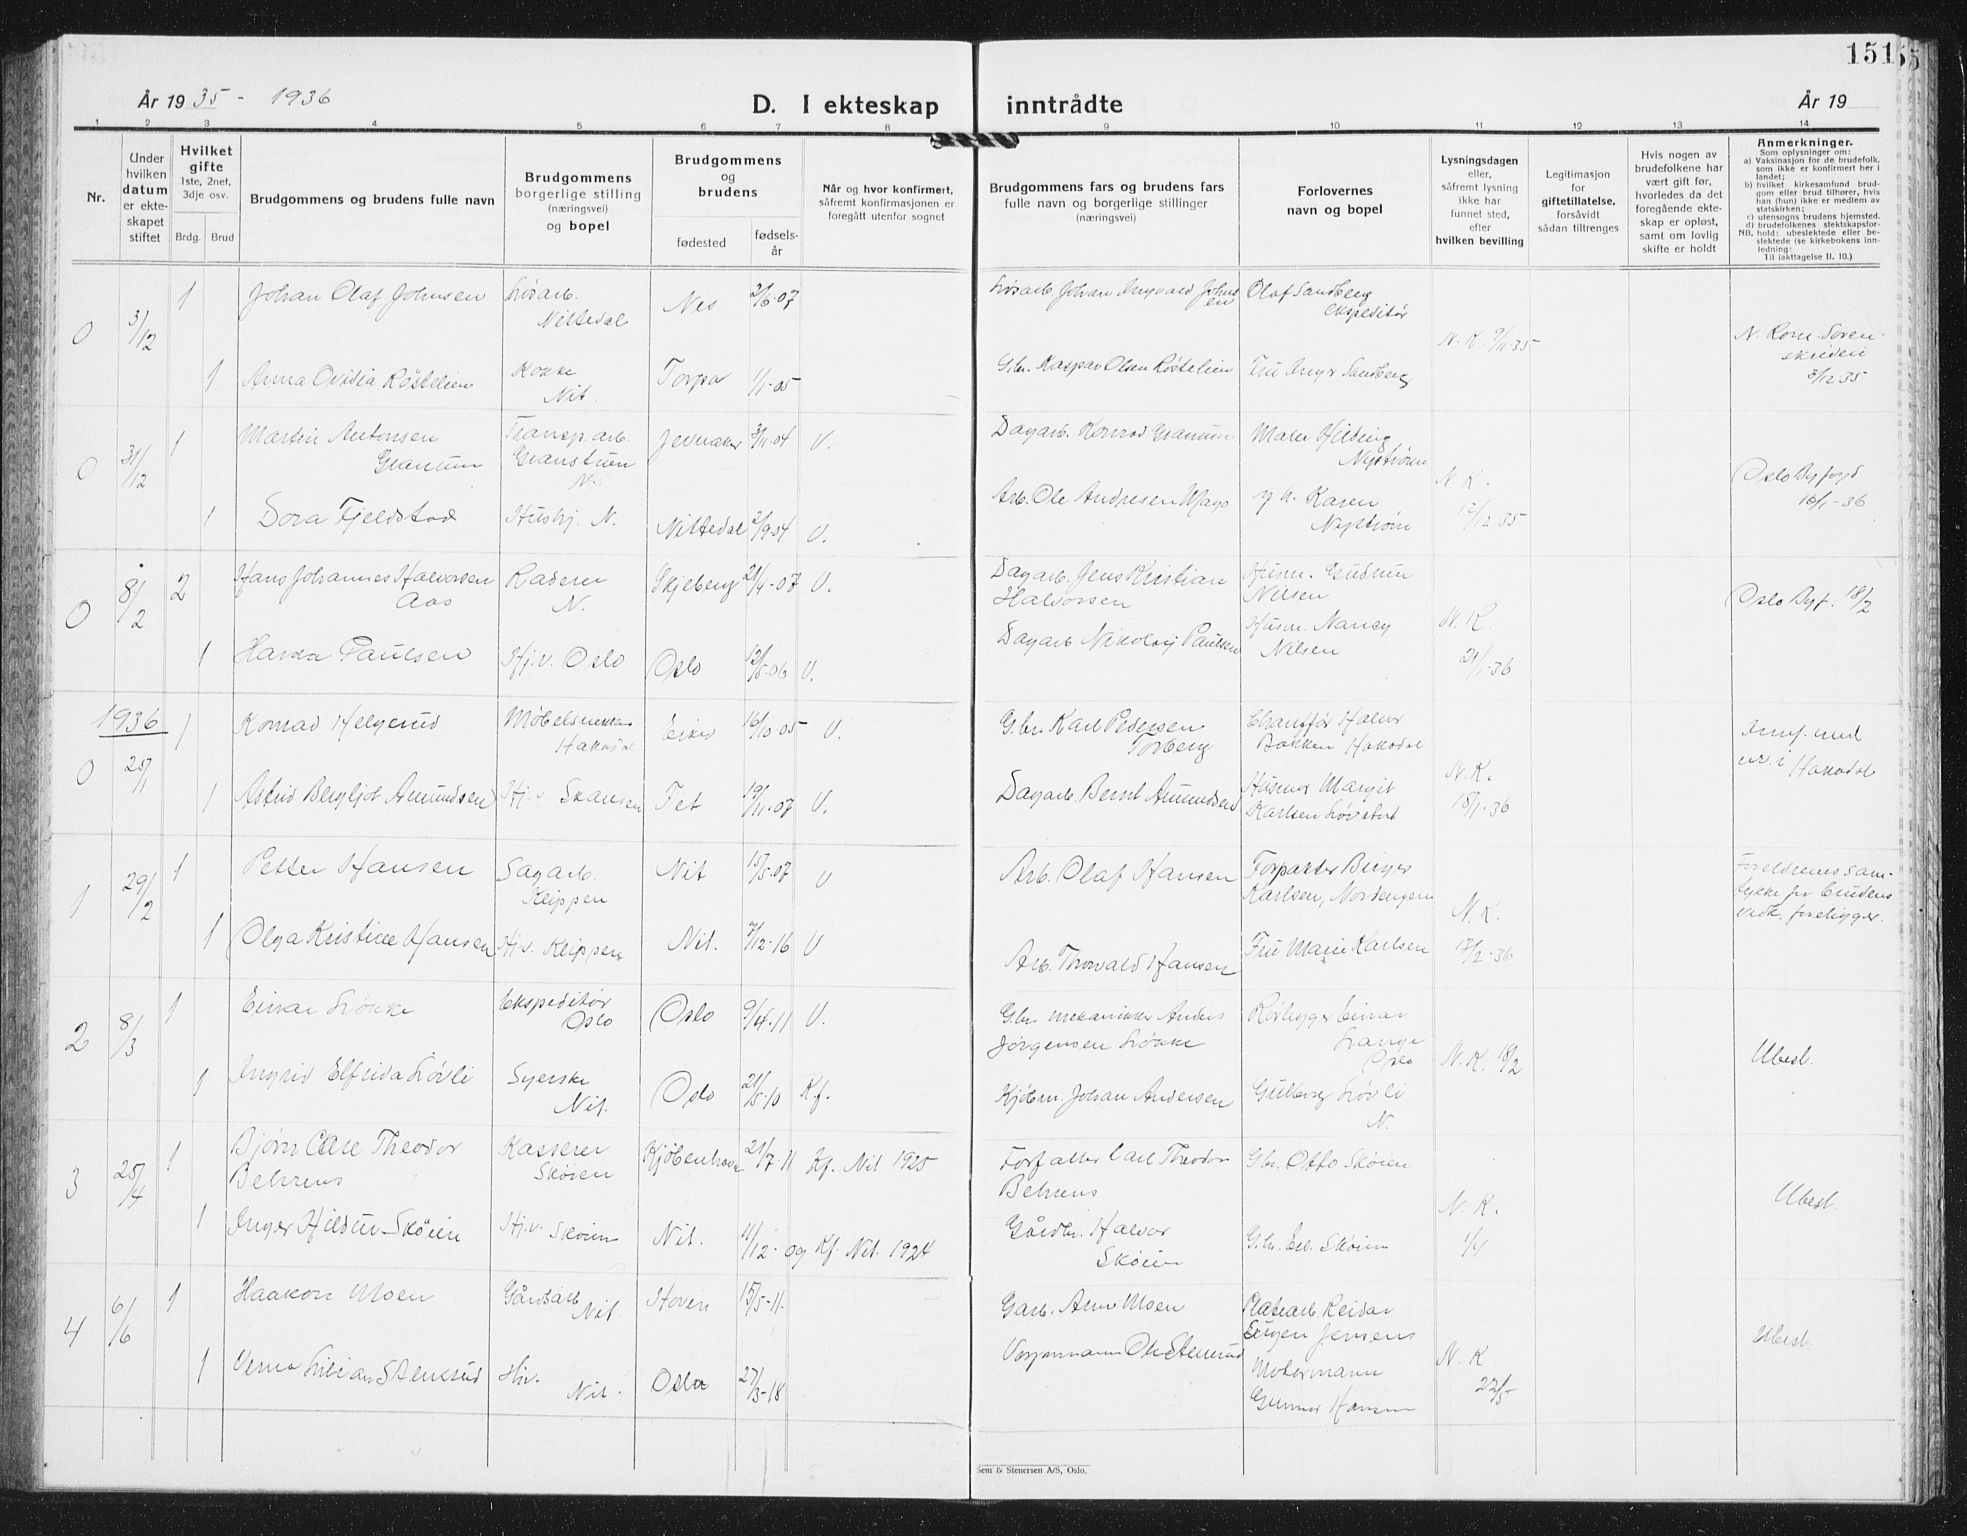 151
År 1935 - 1936
D. I ekteskap inntrådte
År 19
1 2 3 4 5 6 7 8 9 10 11 12 13 14
Nr.
Under hvilken datum er ekteskapet stiftet
Hvilket gifte
1ste, 2net, 3dje osv.
Brdg. Brud
Brudgommens og brudens fulle navn
Brudgommens borgerlige stilling (næringsvei) og bopel
Brudgommens og brudens
fødested
fødselsår
Når og hvor konfirmert, såfremt konfirmasjonen er foregått utenfor sognet
Brudgommens fars og brudens fars fulle navn og borgerlige stillinger (næringsvei)
Forlovernes navn og bopel
Lysningsdagen eller, såfremt lysning ikke har funnet sted, efter hvilken bevilling
Legitimasjon for giftetillatelse, forsåvidt sådan tiltrenges
Hvis nogen av brudefolkene har vært gift før, hvorledes da det foregående ekteskap er opløst, samt om lovlig skifte er holdt
Anmerkninger.
Som oplysninger om:
a) Vaksinasjon for de brudefolk, som ikke er konfirmert her i landet;
b) hvilket kirkesamfund brudgom eller brud tilhører, hvis han (hun) ikke er medlem av statskirken;
c) utensogns brudens hjemsted.
d) brudefolkenes slektskapsforhold: ubeslektede eller beslektede (se kirkebokens innledning:
NB. Til iakttagelse II. 10.)
0 3/12 1 Johan Olaf Johnsen Løsarb. Nittedal Nes 2/6-07 Løsarb. Johan Ingvald Johnsen Olaf Sandberg ekspeditør N. K. 9/11-35 N. Rom. Sorenskriveri 3/12 35
1 Anna Ovidia Røstelien Kokke Nit. Torpa 1/1-05 Gbr. Kaspar Olsen Røstelien Fru Inger Sandberg
0 31/12 1 Martin Antonsen Granum Transp. arb. N. Jevnaker 3/11-04 V. Dagarb. Konrad Granum Maler Hilding Nystrøm N. K. 12/12-35 Oslo Byfogd 16/1-36
1 Dora Fjeldstad Hushj. N. Nittedal 2/9-04 V. Arb. Ole Andresen Karen Nystrøm
0 8/2 2 Hans Johannes Halvorsen Aas N. Skjeberg 21/4-07 V. Dagarb. Jens Kristian Halvorsen Husm. Gudrun Nilsen N. K. 21/1-36 Oslo Byf. 18/2
1 Paulsen Hj.v. Oslo Oslo 12/5-06 V. Dagarb. Nikolay Paulsen Husm. Nancy Nilsen
1936
0 25/1 1 Konrad Helgerud Møbelsnekker Hakadal Eiker 16/10-05 V. Gbr. Karl Pedersen Torberg Chauffør Halvor Bakken Hakadal N. K. 18/1-36 i Hakadal
1 Astrid Bergljot Amundsen Hj. v. Skansen Fet 19/11-07 V. Dagarb. Bernt Amundsen Husmor Margit Karlsen
1 29/2 1 Petter Hansen Sagarb. Klippen Nit 15/5-07 V Arb. Olaf Hansen Forpakter Birger Karlsen, Nordengen N. K. 13/2-36 Foreldrenes samtykke for brudens vedk. foreligger.
1 Olga Kristine Hansen Hj.v. Klippen Nit. 7/12-16 V Arb. Thorvald Hansen Fru Marie Karlsen
2 8/3 1 Einar Løkke Ekspeditør Oslo Oslo 9/4-11 V. Gbr. mekanikker Anders Jørgensen Løkke Rørlegger Einar Lange Oslo N. K. 18/2 Ubesl.
1 Ingrid Elfrida Løvli Syerske Nit. Oslo 21/5-10 Kf. Kjøbm. Johan Andersen Gulberg Løvli N.
3 25/4 1 Bjørn Carl Theodor Behrens Kasserer Skøien Kjøbenhavn 21/7-11 Kf. Nit 1925 Forfatter Carl Theodor Behrens Gbr. Otto Skøien N. K. 1/4 Ubesl.
1 Inger Hildur Skøien Hj.v. Skøien Nit. 11/12-09 Kf. Nit. 1924 Gårdbr. Halvor Skøien Gbr. Skøien
4 6/6 1 Haakon Moen Gårdsarb Nit. Hovin 15/5-11 Garb. Arne Moen Platearb Reidar Eugen Jensen N. K 22/5 Ubesl.
1 Verna Lilian Stensrud Hv. Nit. Oslo 27/3-18 Vognmann Ole Stensrud Motormann Gunnar Hansen
Sem & Stenersen A/S, Oslo.